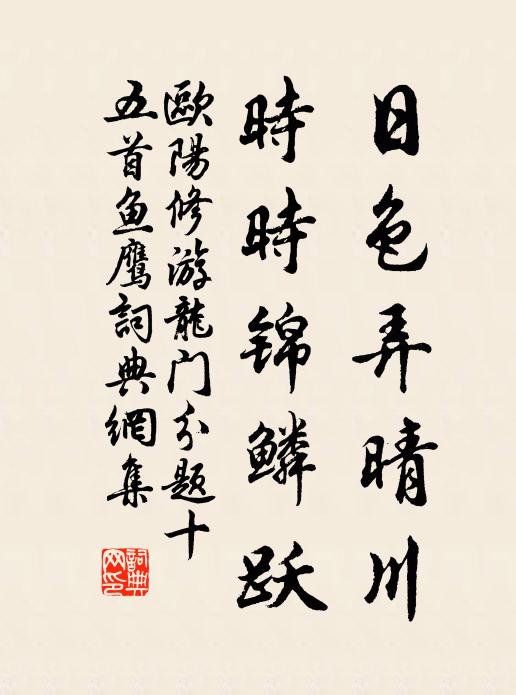 日色弄晴川
時時锦鳞跃
歐陽修游龍门分题十
五首鱼鹰詞典網集
詞典
网印